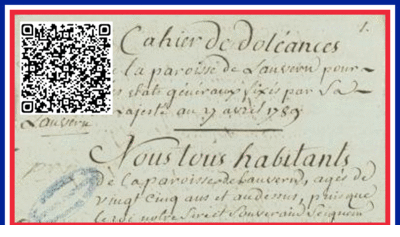 1.
Cahier de doléances
de la paroisse de Lauvern pour
états généraux fixés par Sa
Majesté au 27 avril 1789
Lauvern
Nous tous habitants
de la paroisse de Lauvern, agés de
vingt cinq ans et audessus, puisque
le roi notre Sire et Souverain Seigneur